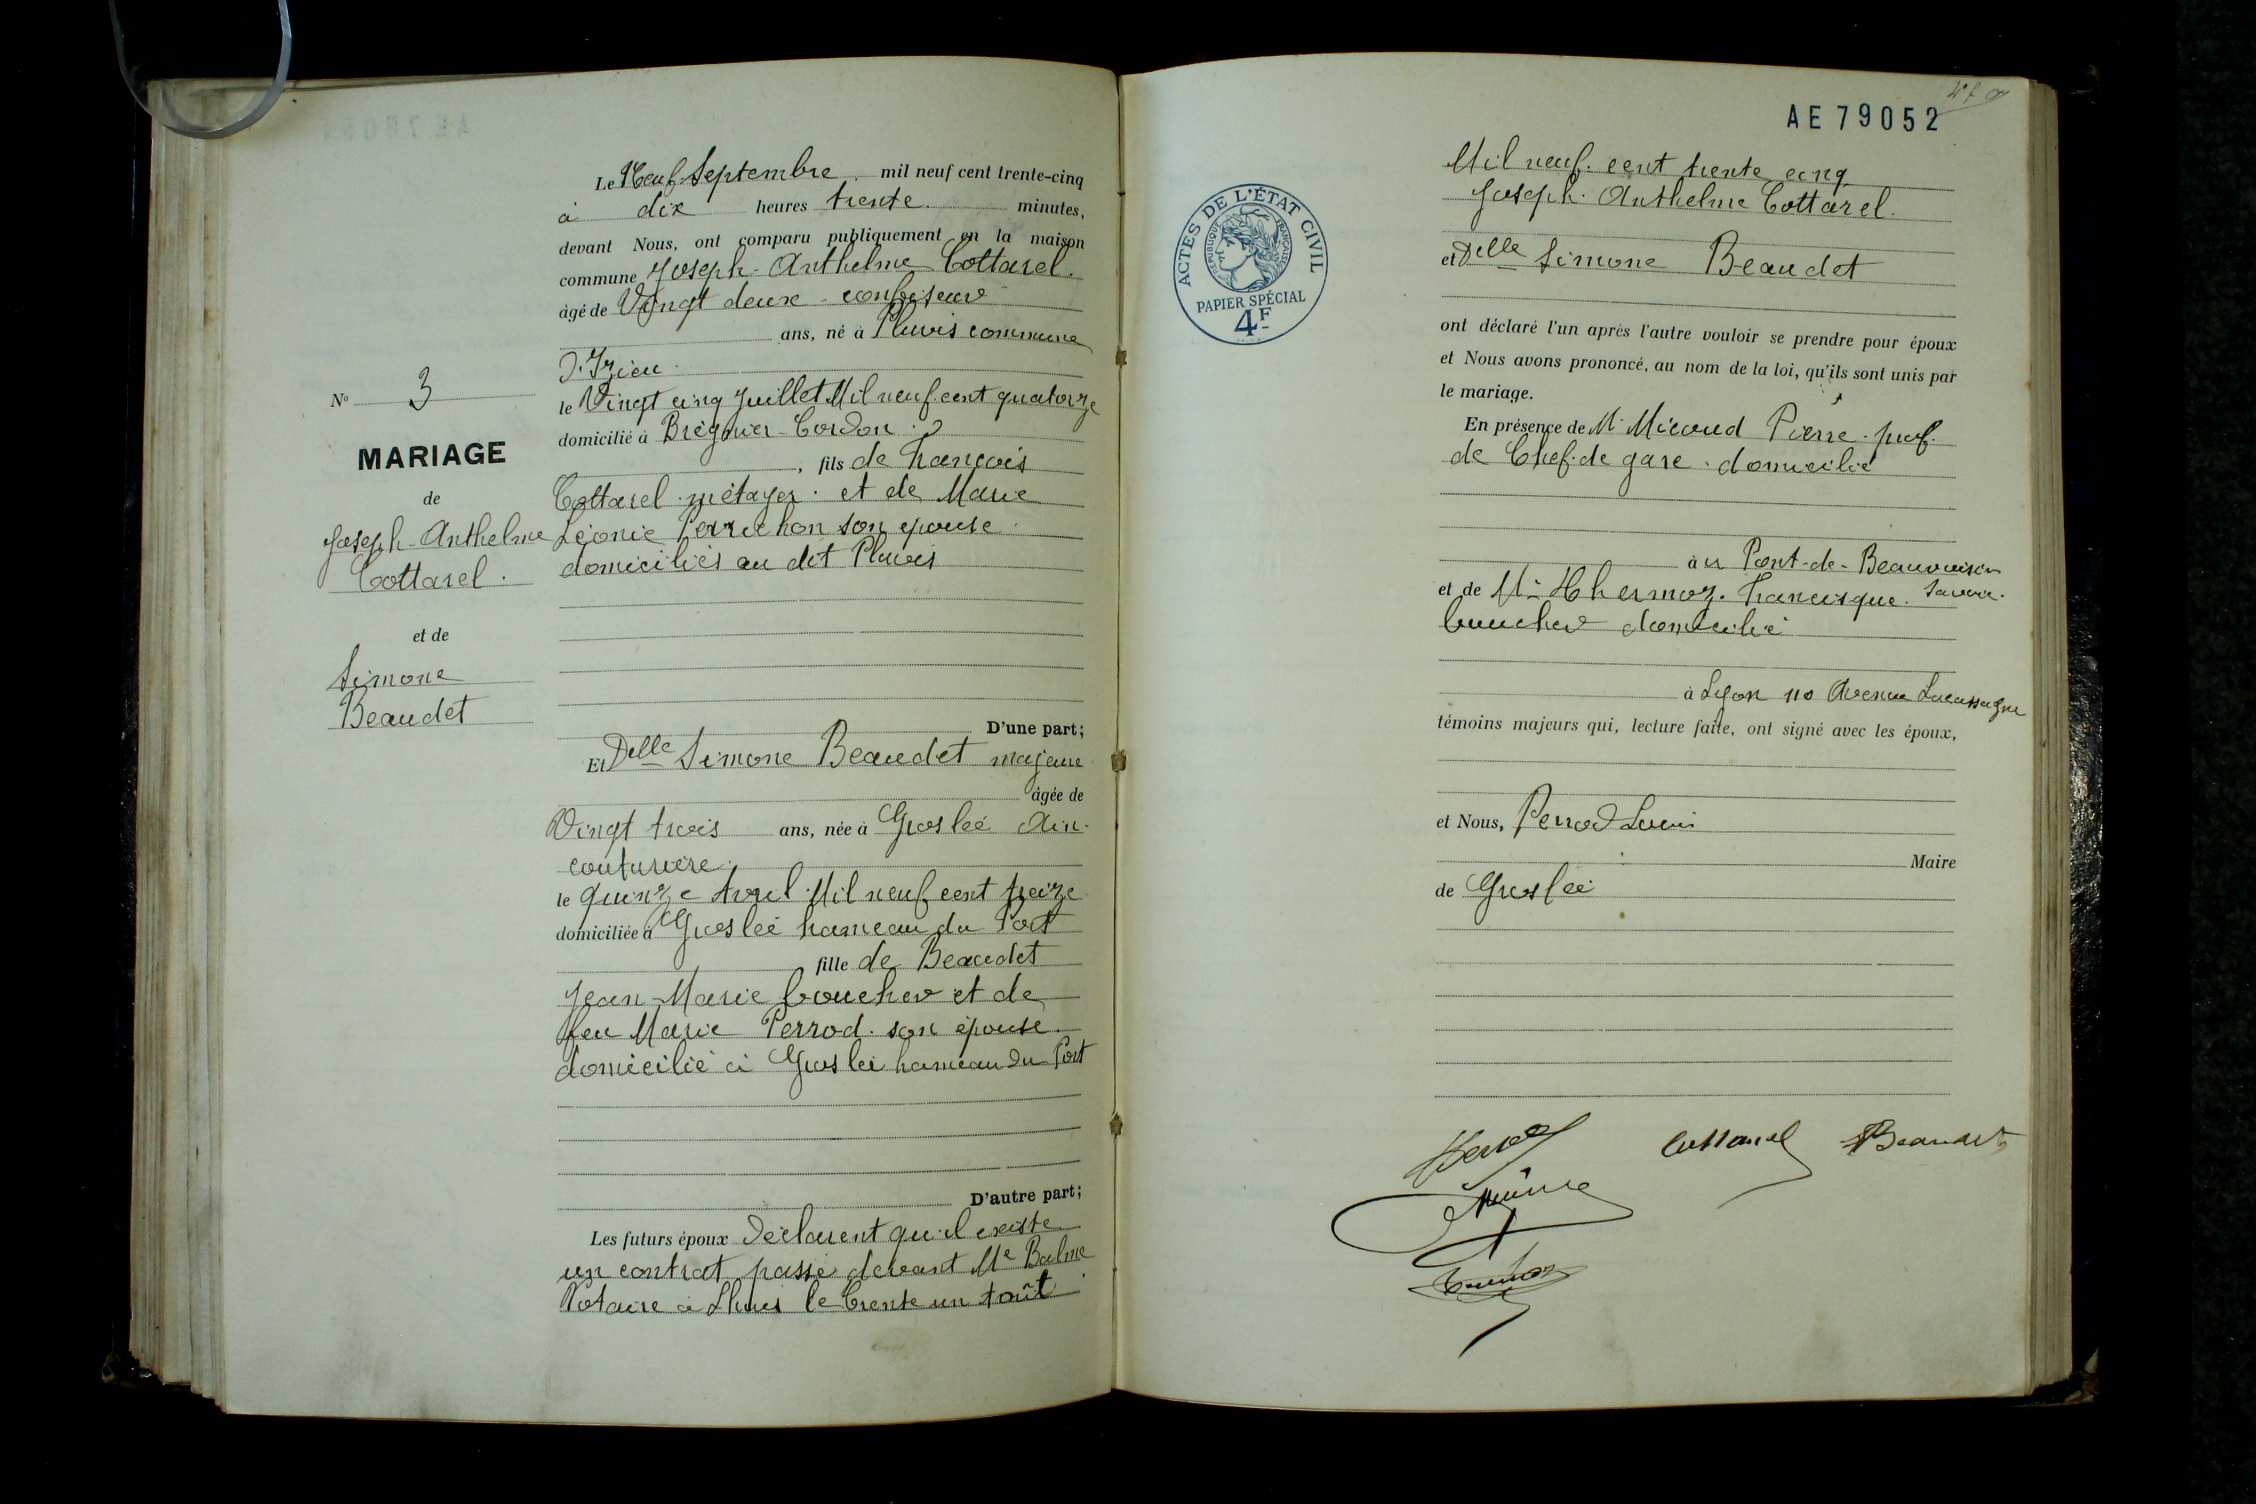 Le Neuf Septembre mil neuf cent trente-cinq
à dix heures trente minutes,
devant Nous, ont comparu publiquement en la maison
commune Joseph-Anthelme Cottarel.
âgé de Vingt deux - confiseur
ans, né à Pluvis commune
d'Izieu.
le Vingt cinq Juillet Mil neuf cent quatorze
domicilié à Brégnier-Cordon.
, fils de François
Cottarel métayer et de Marie
Léonie Perrichon son épouse.
domiciliés au dit Pluvis
N° 3
MARIAGE
de
Joseph-Anthelme
Cottarel.
et de
Simone
Beaudet
D'une part;
Et Delle Simone Beaudet majeure
âgée de
Vingt trois ans, née à Groslée Ain.
couturière.
le quinze Avril Mil neuf cent treize
domiciliée à Groslée hameau du Port
fille de Beaudet
Jean-Marie boucher et de
feu Marie Perrod. son épouse.
domicilié à Groslée hameau du Port
D'autre part;
Les futurs époux déclarent qu'il existe
un contrat passé devant Me Balme
Notaire à Lhuis le trente un Août
AE 79052
Mil neuf. cent trente cinq
Joseph. Anthelme Cottarel.
et Delle Simone Beaudet
ACTES DE L'ÉTAT CIVIL
RÉPUBLIQUE FRANÇAISE
PAPIER SPÉCIAL
4F
ont déclaré l'un après l'autre vouloir se prendre pour époux
et Nous avons prononcé, au nom de la loi, qu'ils sont unis par
le mariage.
En présence de Mr Micoud Pierre.
de Chef. de gare. domicilié
à Pont-de-Beauvoisin
Savoie.
et de Mr Thermoz. Francisque.
boucher domicilié
à Lyon 110 Avenue Lacassagne
témoins majeurs qui, lecture faite, ont signé avec les époux,
et Nous, Perrod Louis
Maire
de Groslée
Cottarel SBeaudet